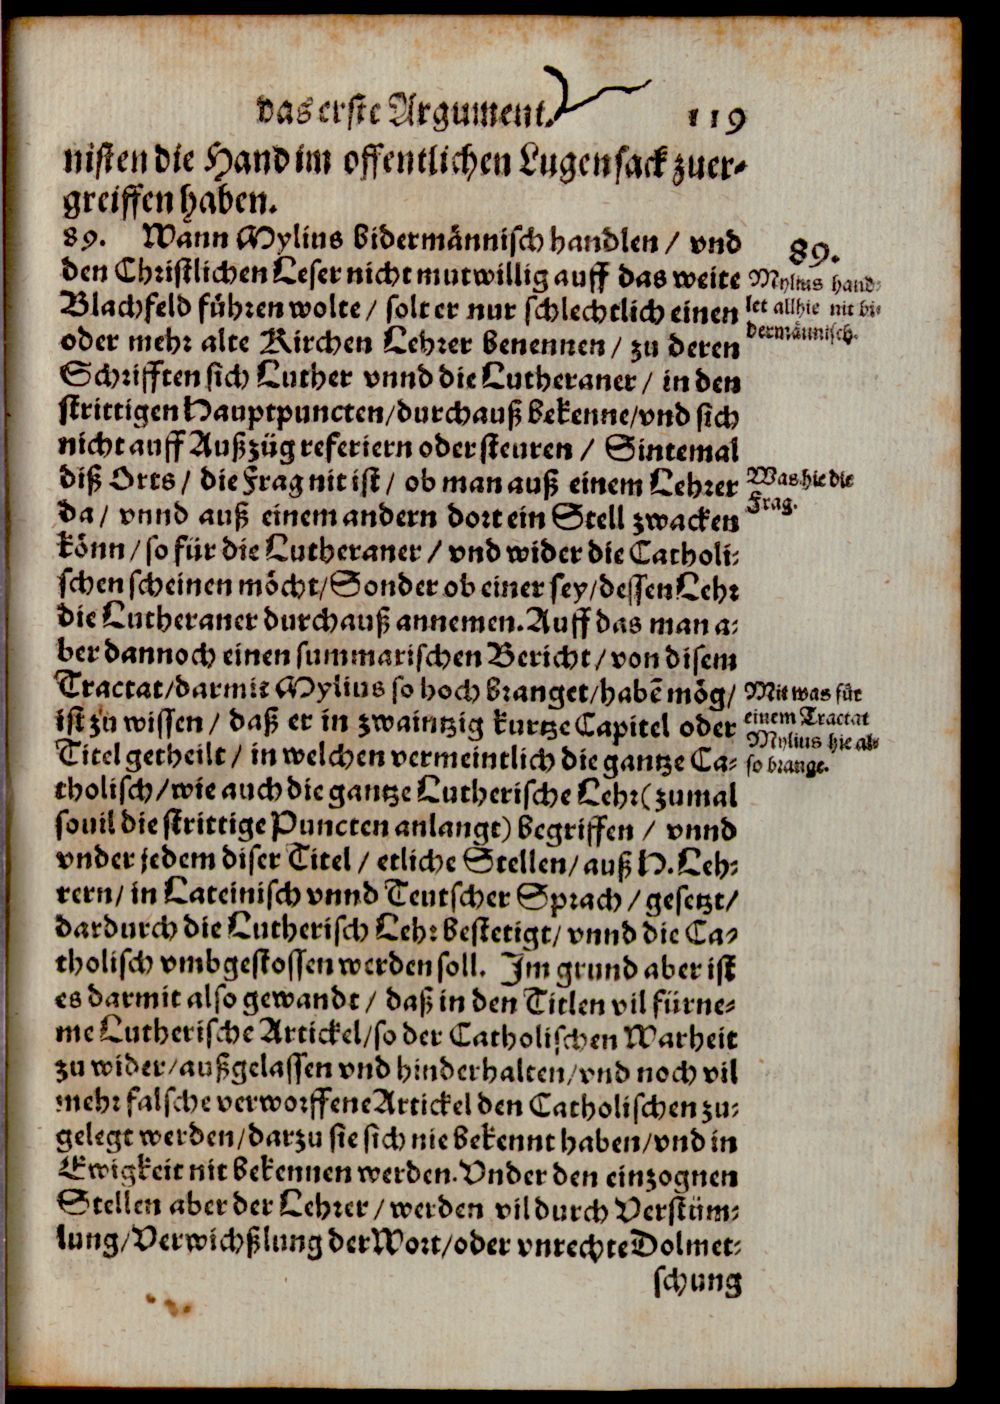 das erste Argument. 119
nisten die Hand im offentlichen Lugensack zuer-
greiffen haben.
89. Wann Mylius bidermännisch handlen / vnd
den Christlichen Leser nicht mutwillig auff das weite
Blachfeld führen wolte / solt er nur schlechtlich einen
oder mehr alte Kirchen Lehrer benennen / zu deren
Schrifften sich Luther vnnd die Lutheraner / in den
strittigen Hauptpuncten/durchauß bekenne/vnd sich
nicht auff Außzüg referiern oder steuren / Sintemal
diß Orts / die Frag nit ist / ob man auß einem Lehrer
da / vnnd auß einem andern dort ein Stell zwacken
könn / so für die Lutheraner / vnd wider die Catholi-
schen scheinen möcht/Sonder ob einer sey/dessen Lehr
die Lutheraner durchauß annemen. Auff das man a-
ber dannoch einen summarischen Bericht / von disem
Tractat/darmit Mylius so hoch branget/habẽ mög/
ist zu wissen / daß er in zwaintzig kurtze Capitel oder
Titel getheilt / in welchen vermeintlich die gantze Ca-
tholisch/wie auch die gantze Lutherische Lehr (zumal
souil die strittige Puncten anlangt) begriffen / vnnd
vnder jedem diser Titel / etliche Stellen/ auß H. Leh-
rern/ in Lateinisch vnnd Teutscher Sprach / gesetzt/
dardurch die Lutherisch Lehr bestetigt/ vnnd die Ca-
tholisch vmbgestossen werden soll. Im grund aber ist
es darmit also gewandt / daß in den Titlen vil fürne-
me Lutherische Artickel/so der Catholischen Warheit
zu wider/außgelassen vnd hinderhalten/vnd noch vil
mehr falsche verworffene Artickel den Catholischen zu-
gelegt werden/darzu sie sich nie bekennt haben/vnd in
Ewigkeit nit bekennen werden. Vnder den einzognen
Stellen aber der Lehrer / werden vil durch Verstüm-
lung/Verwichßlung der Wort/oder vnrechte Dolmet-
schung
89.
Mylius hand-
let allhie nit bi-
dermännisch.
Was hie die
Frag.
Mit was für
einem Tractat
Mylius hie al-
so brange.